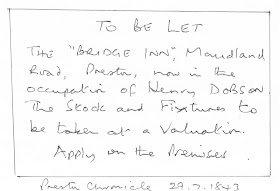 TO BE LET
THE "BRIDGE INN", Maudland
Road, Preston, now in the
occupation of Henry Dobson.
The Stock and Fixtures to
be taken at a Valuation.
Apply on the Premises.
Preston Chronicle 29.7.1843